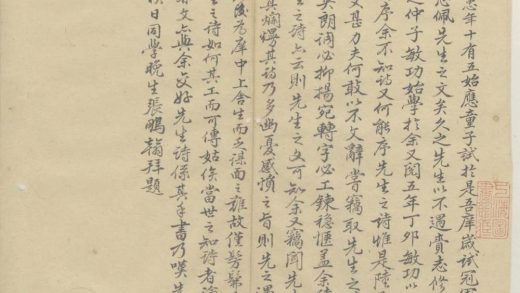 忠年十有五始應童子試於是吾庠歲試冠軍
佩先生之文矣久之先生以不遇賫志修
之仲子敏功始學於余又閱五年丁卯敏功以
序余不知詩又何能序先生之詩惟是陸
文甚力夫何敢以不文辭嘗竊取先生之
英朗詞必抑揚宛轉字必工鍊穩愜蓋余
生之詩亦云則先生之文可知余又竊聞先生
其烟愕其詩乃多幽憂感憤之旨則先之遇
後為庠中上舍生而乏謀面之雅故僅髣髴
生之詩如何其工而可傳姑俟當世之知詩者
文與余交好先生詩係其手書乃嘆先
日同學晚生張鵬翰拜題